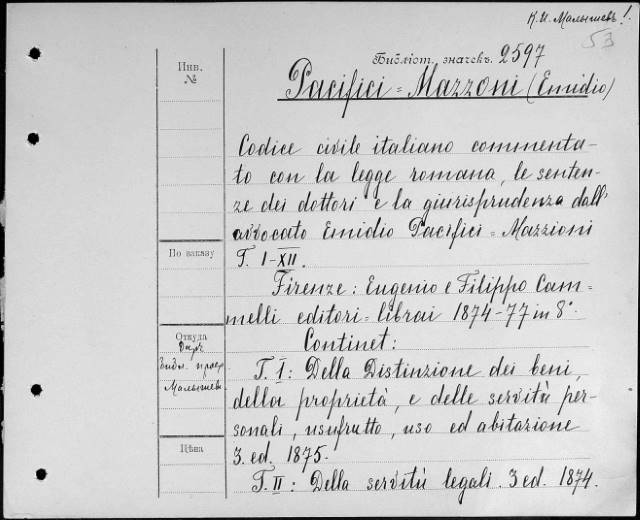 К. И. Малышевъ!
53
Библіот. значекъ. 2597
Инв.
№
Pacifici=Mazzoni (Emidio)
Codice civile italiano commenta-
to con la legge romana, le senten-
ze dei dottori e la giurisprudenza dall'
avvocato Emidio Pacifici=Mazzioni
T. I-XII.
По заказу
Firenze: Eugenio e Filippo Cam=
melli editori=librai 1874-77 in 8°.
Continet:
Откуда
Даръ
библ. проф.
Малышева
T. I: Della Distinzione dei beni,
della proprietà, e delle servitù per-
sonali, usufrutto, uso ed abitazione
3. ed. 1875.
Цѣна
T. II: Della servitù legali. 3 ed. 1874.